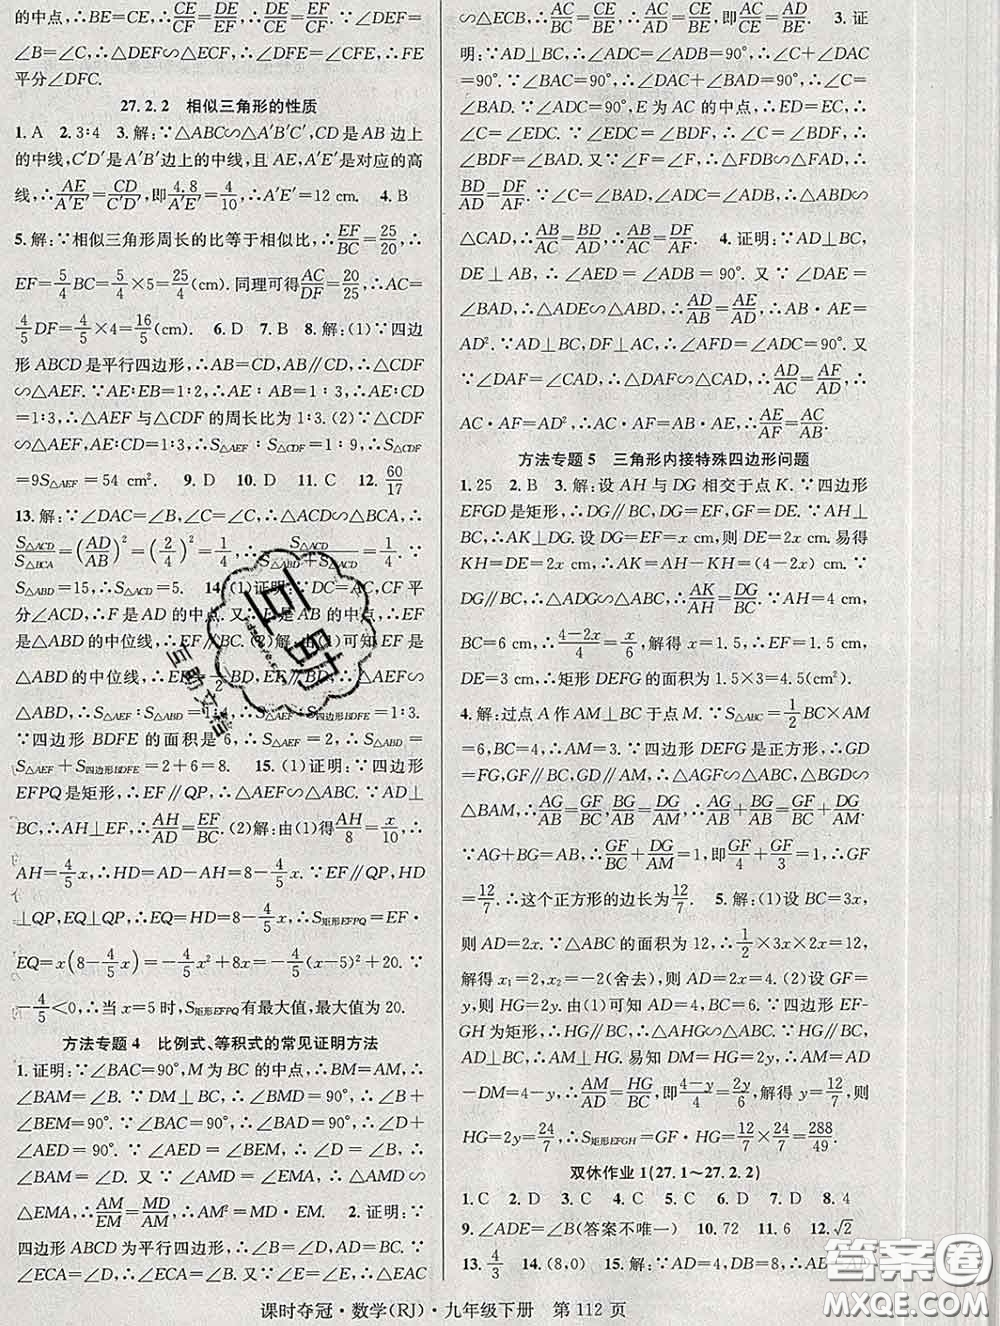 的中点,∴CE/BE=CE/CF,∴CE/CF=DE/EF,∴CE/DE=CF/EF.∵∠DEF
=∠B=∠C,∴△DEF∽△ECF,∴∠DFE=∠CFE,∴FE
平分∠DFC.
27.2.2 相似三角形的性质
1.A 2.3∶4 3.解:∵△ABC∽△A′B′C′,CD是AB边上
的中线,C′D′是A′B′边上的中线,且AE,A′E′是对应的高
线,∴AE/A′E′=CD/C′D′,即4.8/A′E′=4/10,∴A′E′=12 cm. 4.B
5.解:∵相似三角形周长的比等于相似比,∴EF/BC=25/20,∴
EF=5/4BC=5/4×5=25/4(cm).同理可得AC/DF=20/25,∴AC=
4/5DF=4/5×4=16/5(cm). 6.D 7.B 8.解:(1)∵四边
形ABCD是平行四边形,∴AB=CD,AB∥CD,∴△CDF
∽△AEF.∵AE∶EB=1∶2,∴AE∶AB=1∶3,∴AE∶CD
=1∶3,∴△AEF与△CDF的周长比为1∶3.(2)∵△CDF
∽△AEF,AE∶CD=1∶3,∴S△AEF∶S△CDF=1∶9,∴S△CDF
=9S△AEF=54 cm². 9.D 10.D 11.C 12.60/17
13.解:∵∠DAC=∠B,∠C=∠C,∴△ACD∽△BCA,∴
S△ACD/S△BCA=(AD/AB)²=(2/4)²=1/4,∴S△ACD/(S△ABD+S△ACD)=1/4.∵
S△ABD=15,∴S△ACD=5. 14.(1)证明:∵DC=AC,CF平
分∠ACD,∴F是AD的中点.又∵E是AB的中点,∴EF是
△ABD的中位线,∴EF∥BC.(2)解:由(1)可知EF是
△ABD的中位线,∴EF=BD,EF∥BD,∴△AEF∽
△ABD,∴S△AEF∶S△ABD=1∶4,∴S△AEF∶S四边形BDFE=1∶3.
∵四边形BDFE的面积是6,∴S△AEF=2,∴S△ABD=
S△AEF+S四边形BDFE=2+6=8. 15.(1)证明:∵四边形
EFPQ是矩形,∴EF∥QP,∴△AEF∽△ABC.∵AD⊥
BC,∴AH⊥EF,∴AH/AD=EF/BC.(2)解:由(1)得AH/8=x/10,∴
AH=4/5x,∴HD=AD-AH=8-4/5x.∵EF∥QP,HP
⊥QP,EQ⊥QP,∴EQ=HD=8-4/5x,∴S矩形EFPQ=EF·
EQ=x(8-4/5x)=-4/5x²+8x=-4/5(x-5)²+20.∵
-4/5<0,∴当x=5时,S矩形EFPQ有最大值,最大值为20.
方法专题4 比例式、等积式的常见证明方法
1.证明:∵∠BAC=90°,M为BC的中点,∴BM=AM,∴
∠BAM=∠B.∵DM⊥BC,∴∠BMD=90°,∴∠B+
∠BEM=90°.∵∠BAC=90°,∴∠BAD=90°,∴∠D+
∠AED=90°.∵∠AED=∠BEM,∴∠B=∠D,∴
∠BAM=∠D.又∵∠AMD=∠EMA,∴△ADM∽
△EMA,∴AM/EM=MD/AM,∴AM²=MD·EM. 2.证明:∵
四边形ABCD为平行四边形,∴∠B=∠D,AD=BC.∵
∠ECA=∠D,∴∠ECA=∠B.又∵∠E=∠E,∴△EAC
∽△ECB,∴CE/BE=AC/BC,∴CE/BE=AC/AD,即CE/AC=AD/BE. 3.证
明:∵AD⊥BC,∴∠ADC=∠ADB=90°,∴∠C+∠DAC
=90°.∵∠BAC=90°,∴∠BAD+∠DAC=90°,∴∠C=
∠BAD.∵∠ADC=90°,E为AC的中点,∴ED=EC,∴
∠C=∠EDC.∵∠EDC=∠BDF,∴∠C=∠BDF,∴∠BAD
=∠BDF.又∵∠F=∠F,∴△FDB∽△FAD,∴
BD/AD=DF/AF.∵∠C=∠BAD,∠ADC=∠ADB,∴△ABD
∽△CAD,∴AB/AC=BD/AD,∴AB/AC=DF/AF. 4.证明:∵AD⊥BC,
DE⊥AB,∴∠AED=∠ADB=90°.又∵∠DAE=
∠BAD,∴△ADE∽△ABD,∴AD/AB=AE/AD,∴AB·AE=
AD².∵AD⊥BC,DF⊥AC,∴∠AFD=∠ADC=90°.又
∵∠DAF=∠CAD,∴△DAF∽△CAD,∴AD/AC=AF/AD,∴
AC·AF=AD²,∴AB·AE=AC·AF,∴AE/AF=AC/AB.
方法专题5 三角形内接特殊四边形问题
1.25 2.B 3.解:设AH与DG相交于点K.∵四边形
EFGD是矩形,∴DG∥BC,DG=EF,GF=DE.∵AH⊥BC,
∴AK⊥DG.设DG=EF=x cm,则DE=2x cm.易得
KH=DE=2x cm,∴AK=AH-KH=(4-2x) cm.∵
DG∥BC,∴△ADG∽△ABC,∴AK/AH=DG/BC.∵AH=4 cm,
BC=6 cm,∴(4-2x)/4=x/6,解得x=1.5,∴DG=1.5 cm,
DE=3 cm,∴矩形DEFG的面积为1.5×3=4.5(cm²).
4.解:过点A作AM⊥BC于点M.∵S△ABC=1/2BC×AM
=6,BC=4,∴AM=3.∵四边形DEFG是正方形,∴GD
=FG,GF∥BC,GD∥AM,∴△AGF∽△ABC,△BDG
∽△BAM,∴AG/AB=GF/BC,BG/AB=DG/AM,∴AG/AB+BG/AB=GF/BC+DG/AM.
∵AG+BG=AB,∴GF/BC+DG/AM=1,即GF/4+GF/3=1,∴GF
=12/7.∴这个正方形的边长为12/7. 5.解:(1)设BC=3x,
则AD=2x.∵△ABC的面积为12,∴1/2×3x×2x=12,
解得x₁=2,x₂=-2(舍去),则AD=2x=4.(2)设GF=
y,则HG=2y.由(1)可知AD=4,BC=6.∵四边形EF-
GH为矩形,∴HG∥BC,∴△AHG∽△ABC.∵AD⊥BC,
HG∥BC,∴AM⊥HG.易知DM=HE=y,∴AM=AD
-DM=4-y,∴AM/AD=HG/BC,即(4-y)/4=2y/6,解得y=12/7,则
HG=2y=24/7,∴S矩形EFGH=12/7×24/7=288/49.
双休作业1(27.1～27.2.2)
1.C 2.D 3.D 4.C 5.C 6.C 7.D 8.4
9.∠ADE=∠B(答案不唯一) 10.72 11.6 12.√2
13.4/3 14.(8,0) 15.解:
课时夺冠·数学(RJ)·九年级下册 第112页
互助
互助文档
答案圈
MXQE.COM